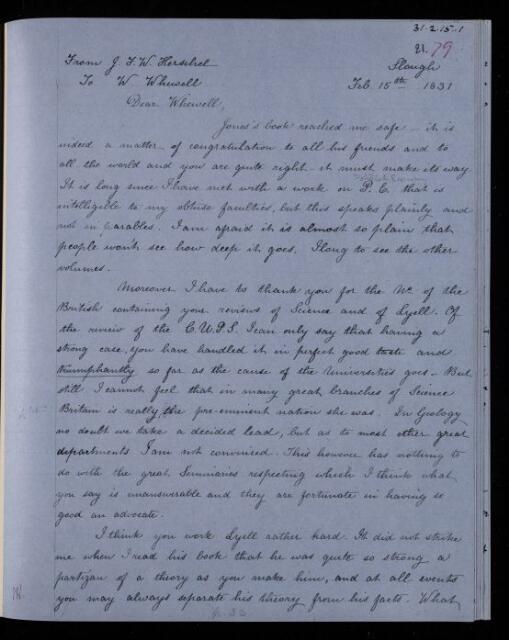 31-2-15-1
21. 79
From J. F. W. Herschel
To W Whewell
Slough
Feb. 15th 1831
Dear Whewell,
Jones's book reached me safe - it is
indeed a matter of congratulation to all his friends and to
all the world and you are quite right it must make its way
It is long since I have met with a work on P. E. that is
intelligible to my obtuse faculties, but this speaks plainly and
not in parables. I am afraid it is almost so plain that
people won't see how deep it goes. I long to see the other
volumes.
Moreover I have to thank you for the No. of the
British containing your reviews of Science and of Lyell. Of
the review of the C.U.P.S. I can only say that having a
strong case, you have handled it in perfect good taste and
triumphantly so far as the cause of the Universities goes - But
still I cannot feel that in many great branches of Science
Britain is really the pre-eminent nation she was. In Geology
no doubt we take a decided lead, but as to most other great
departments I am not convinced. This however has nothing to
do with the great Seminaries respecting which I think what
you say is unanswerable and they are fortunate in having so
good an advocate.
I think you work Lyell rather hard. It did not strike
me when I read his book that he was quite so strong a
partizan of a theory as you make him, and at all events
you may always separate his theory from his facts. What